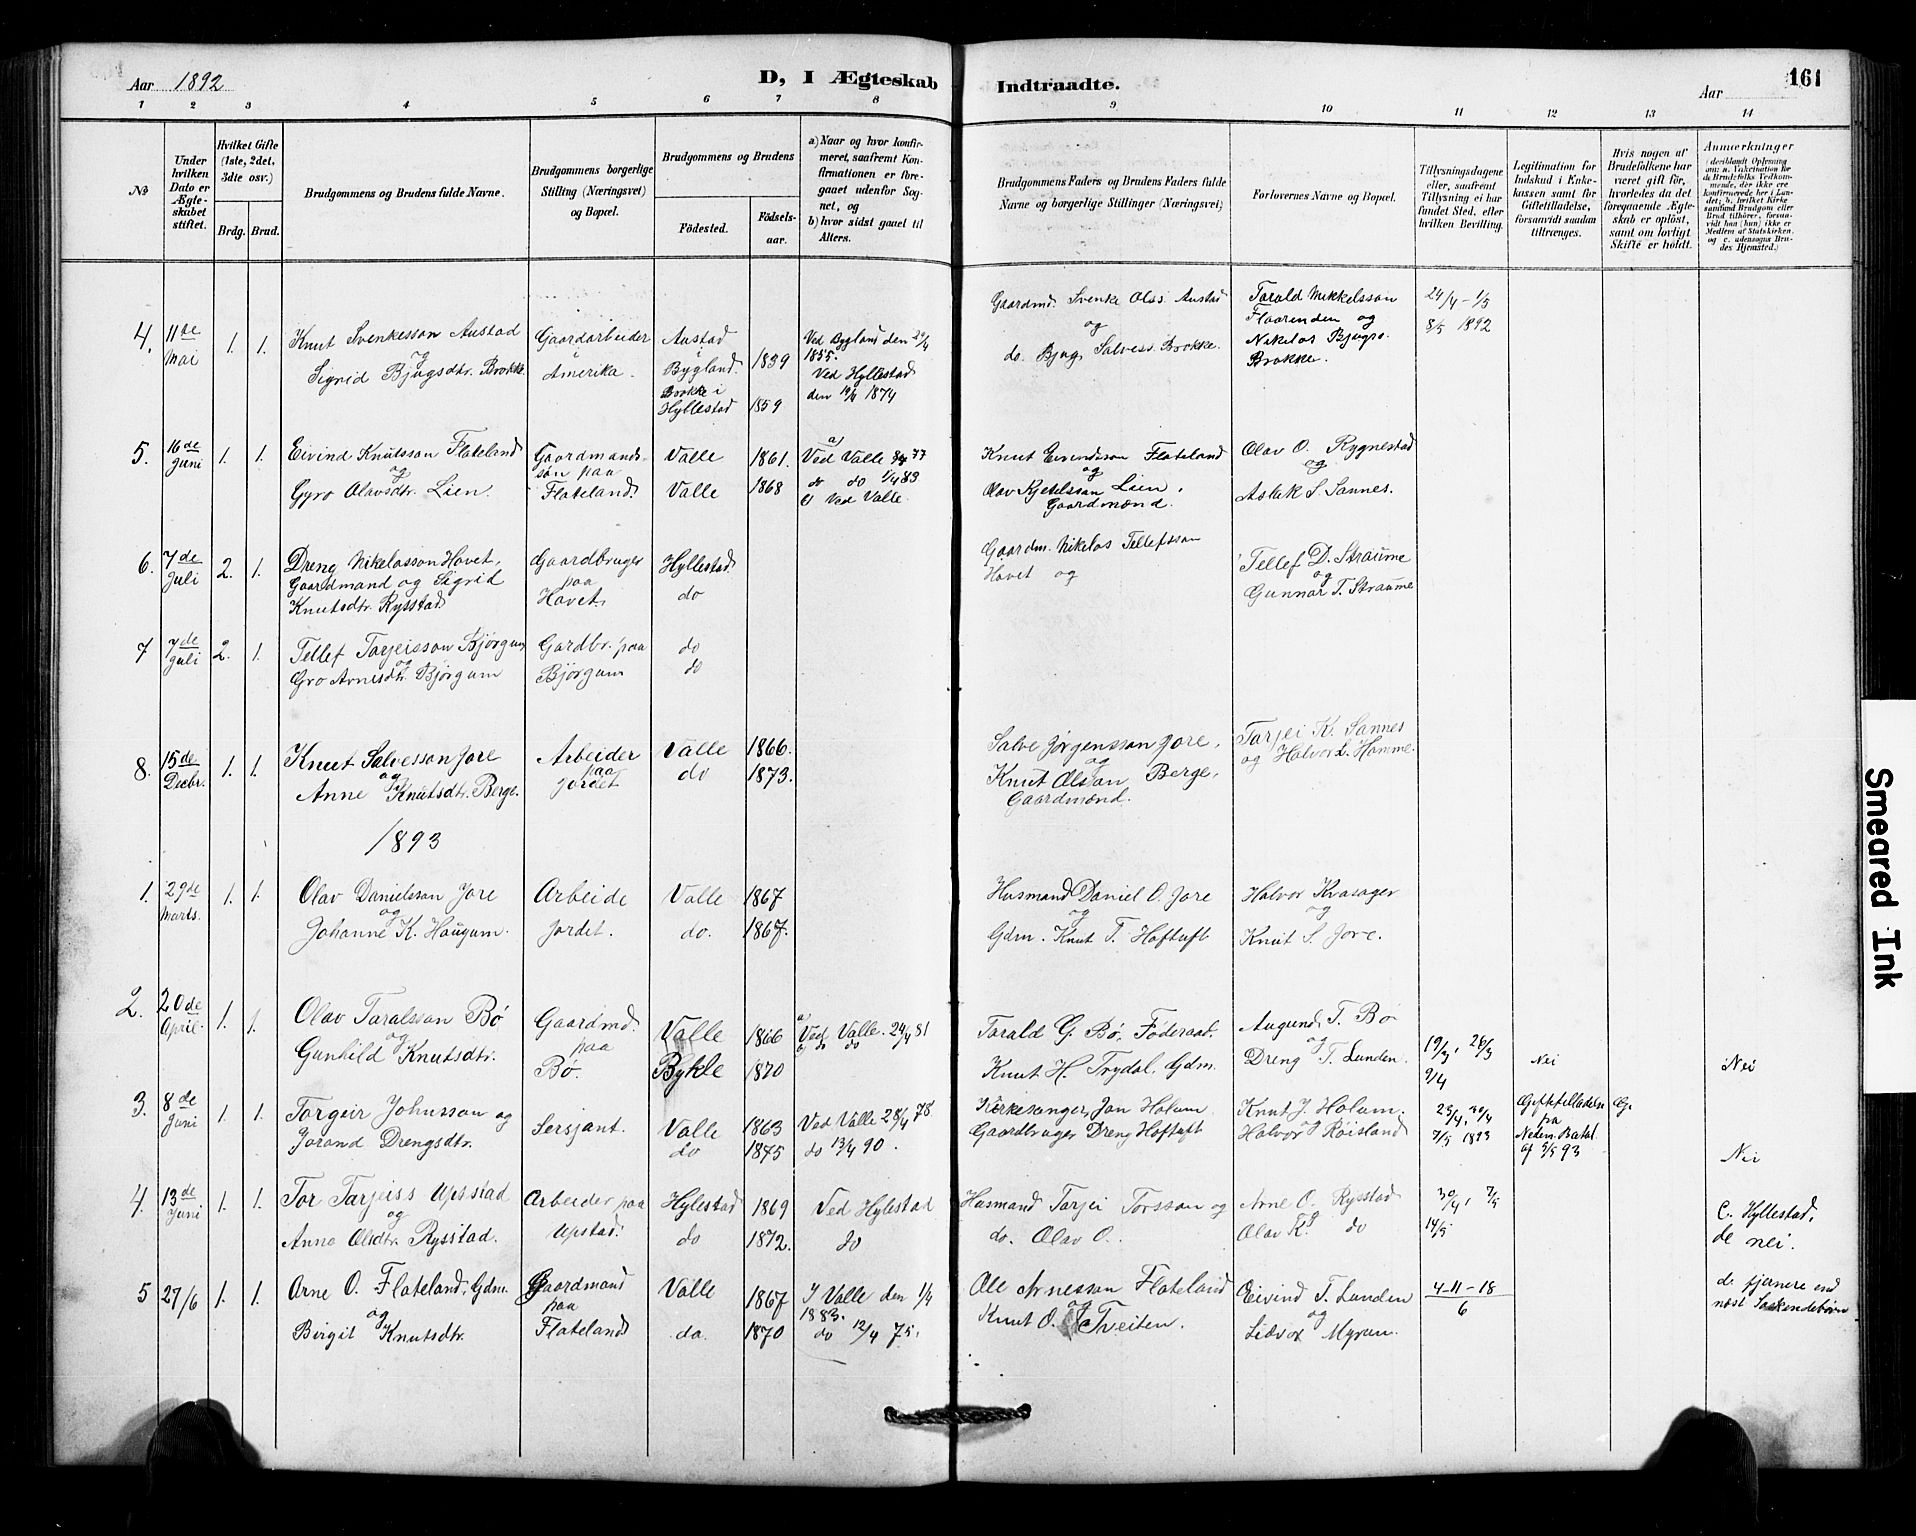 Aar 1892
D, I Ægteskab
Indtraadte.
Aar
161
1 2 3 4 5 6 7 8 9 10 11 12 13 14
№
Under hvilken Dato er Ægteskabet stiftet.
Hvilket Gifte (1ste, 2det, 3dte osv.)
Brdg. Brud.
Brudgommens og Brudens fulde Navne.
Brudgommens borgerlige Stilling (Næringsvei) og Bopæl.
Brudgommens og Brudens
Fødested. Fødselsaar.
a) Naar og hvor konfirmeret, saafremt Konfirmationen er foregaaet udenfor Sognet, og
b) hvor sidst gaaet til Alters.
Brudgommens Faders og Brudens Faders fulde Navne og borgerlige Stillinger (Næringsvei)
Forlovernes Navne og Bopæl.
Tillysningsdagene eller, saafremt Tillysning ei har fundet Sted, efter hvilken Bevilling.
Legitimation for Indskud i Enkekassen samt for Giftetilladelse, forsaavidt saadan tiltrænges.
Hvis nogen af Brudefolkene har været gift før, hvorledes da det foregaaende Ægteskab er opløst, samt om lovligt Skifte er holdt.
Anmærkninger
4. 11de Mai 1. 1. Knut Svenkesson Austad
og
Sigrid Bjugsdtr. Brokke.
Gaardarbeider i Amerika.
Austad i Bygland. 1839
Brokke i Hyllestad 1859
Ved Bygland den 29/4 1855.
Ved Hyllestad den 12/4 1874
Gaardmd. Svenke Olss. Austad
og
do. Bjug Salvess. Brokke.
Tarald Mikkelsson Flaarenden og
Nikolos Bjugss. Brokke.
24/4 - 1/5
8/5 1892
5. 16de Juni 1. 1. Eivind Knutsson Flateland
og
Gyro Olavsdtr. Lien.
Gaardmandssøn paa Flateland.
Valle 1861.
Valle 1868
a) Ved Valle 77
do do 1/4 83
b) Ved Valle.
Knut Eivindsson Flateland
og
Olav Kjetelsson Lien, Gaardmænd.
Olav O. Rygnestad
og
Aslak S. Sannes.
6. 7de Juli 2. 1. Dreng Nikolosson Hovet,
Gaardmand og Sigrid
Knutsdtr. Rysstad
Gaardbruger paa Hovet.
Hyllestad.
do
Gaardm. Nikolos Tellefsson
Hovet og
Tellef D. Straume
og
Gunnar T. Straume
7 7de Juli 2. 1. Tellef Torjeisson Bjørgum
og
Gro Arnesdtr. Bjørgum
Gardbr. paa Bjørgum
do
do
8. 15de Decbr. 1. 1. Knut Salvesson Jore
og
Anne Knutsdtr. Berge.
Arbeider paa Jordet
Valle 1866.
do 1873.
Salve Jørgensson Jore,
og
Knut Olsson Berge,
Gaardmænd.
Tarjei K. Sannes
og Halvor L. Homme.
1893
1. 29de Marts. 1. 1. Olav Danielsson Jore
og
Johanne K. Haugum.
Arbeide Jordet.
Valle 1867
do. 1867.
Husmand Daniel O. Jore
og
Gdm. Knut T. Hoftuft
Halvor Kvasager
og
Knut S. Jore.
2. 20de April. 1. 1. Olav Taralsson Bø
og
Gunhild Knutsdtr.
Gaardmd. paa Bø.
Valle 1866
Bykle 1870
a) Ved Valle. 24/4 81
b) do do
Tarald G. Bø, Føderaad.
Knut H. Trydal, Gdm.
Augund T. Bø
og
Dreng T. Lunden.
19/3, 26/3
9/4
Nei
Nei
3. 8de Juni 1. 1. Torgeir Johnsson og
Jorand Drengsdtr.
Sersjant.
Valle 1863
do 1875
Ved Valle 28/4 78
do 13/4 90.
Kirkesanger Jon Holum
Gaardbruger Dreng Hoftuft
Knut J. Holum.
og
Halvor Røisland
23/4, 30/4
7/5 1893
Giftetilladelse
pa
Nedenes Batal.
af 5/5 93
Nei
4. 13de Juni 1. 1. Tor Tarjeiss Upsstad
og
Anne Olsdtr. Rysstad.
Arbeider paa Upstad.
Hylestad 1869
do 1872.
Ved Hylestad
do
Husmand Tarjei Torsson og
do. Olav O.
Arne O. Rysstad
og
Olav K. do
30/4, 7/5
14/5
C. Hyllestad,
de nei.
5 27/6 1. 1. Arne O. Flateland, Gdm.
og
Birgit Knutsdtr.
Gaardmand paa Flateland
Valle 1867
do. 1870
I Valle den 1/4 1883.
do 12/4 75.
Ole Arnesson Flateland
og
Knut O. Tveiten.
Eivind T. Lunden
og
Lidvor Myran.
4-11-18
6
d. fjernere end
næst Søskendebørn
Smeared Ink